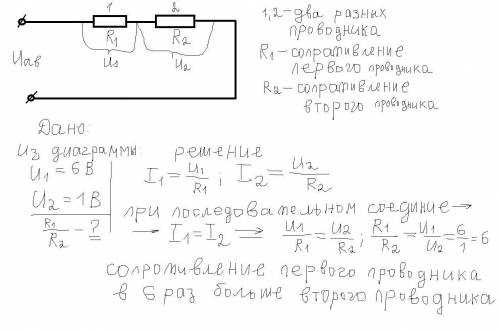 1 2
R₁ R₂
U₁ U₂
Uав
1,2-два разных
проводника
R₁-сопративление
первого проводника
R₂-сопративление
второго проводника
Дано:
из диаграммы: решение
U₁=6В
U₂=1В
R₁/R₂-?
I₁=U₁/R₁; I₂=U₂/R₂
при последовательном соединие→
→ I₁=I₂ ⇒ U₁/R₁=U₂/R₂; R₁/R₂=U₁/U₂=6/1=6
сопротивление первого проводника
в 6 раз больше второго проводника